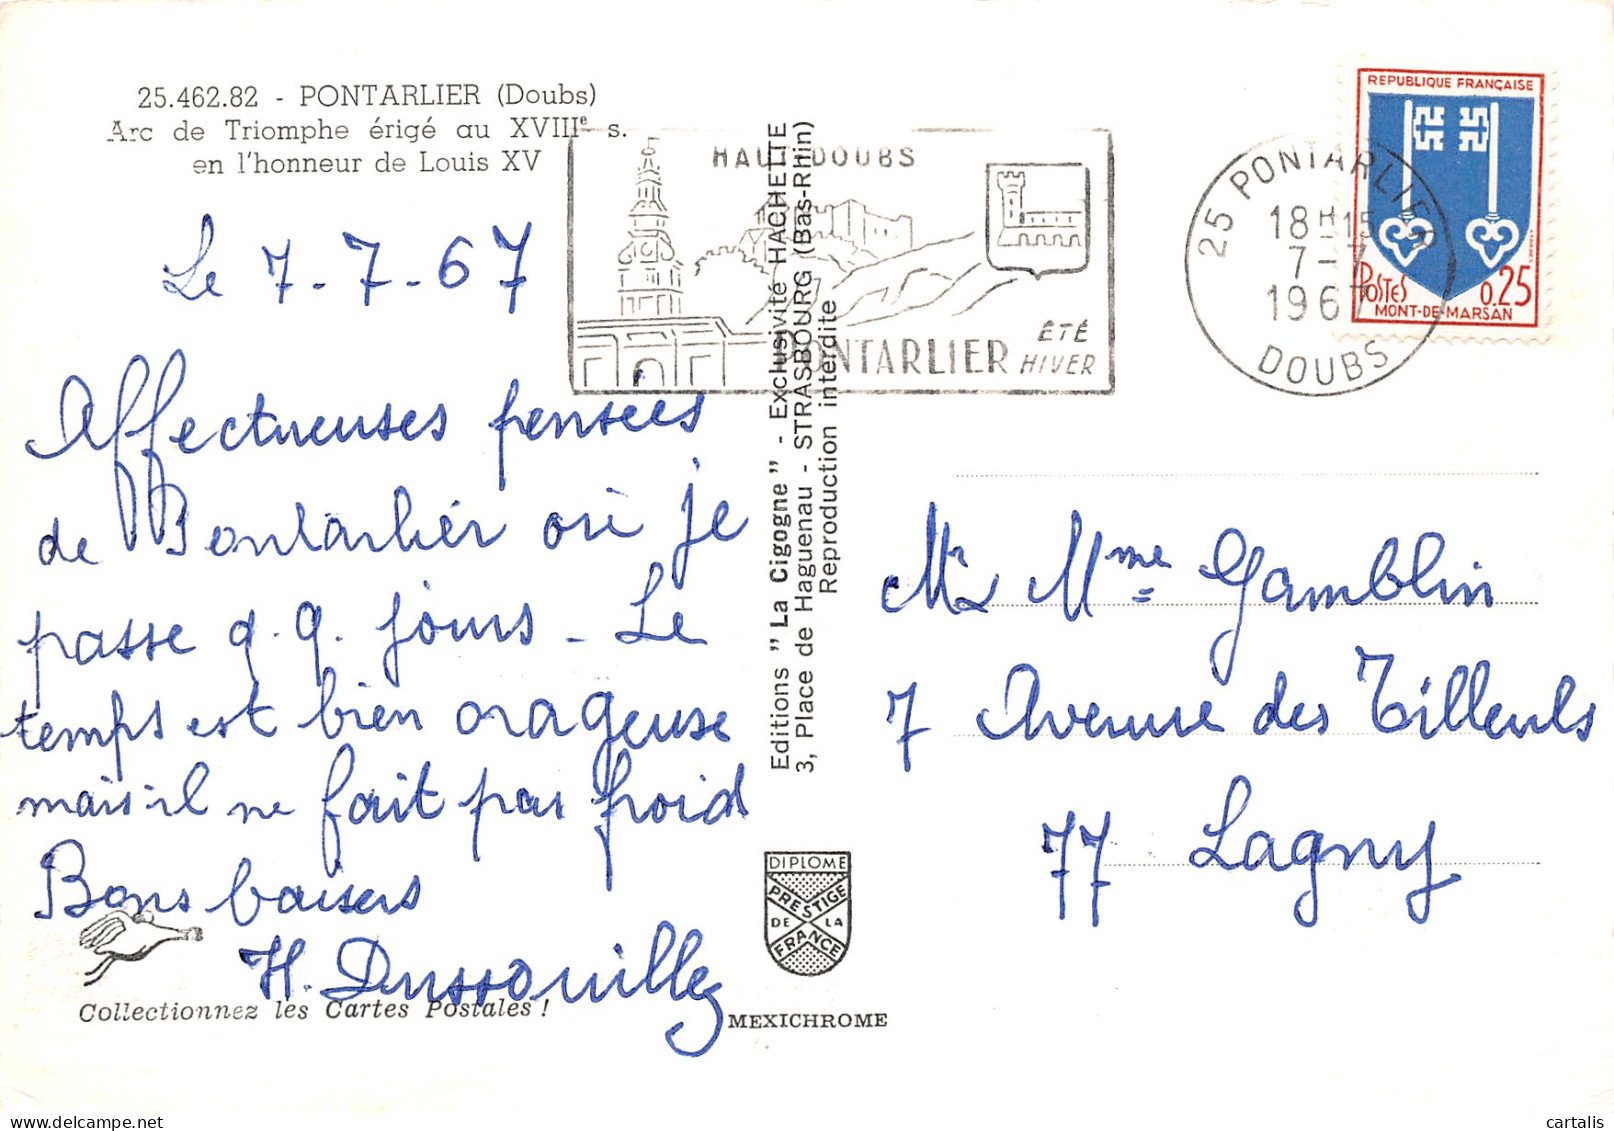 25.462.82 - PONTARLIER (Doubs)
Arc de Triomphe érigé au XVIIIe s.
en l'honneur de Louis XV
Le 7-7-67
Affectueuses pensées
de Pontarlier où je
passe q.q. jours - Le
temps est bien orageuse
mais il ne fait pas froid
Bons baisers
H. Dussouillez
Collectionnez les Cartes Postales !
HAUT DOUBS
PONTARLIER
ÉTÉ
HIVER
Editions " La Cigogne " - Exclusivité HACHETTE
3, Place de Haguenau - STRASBOURG (Bas-Rhin)
Reproduction interdite
DIPLOME
PRESTIGE
DE LA
FRANCE
MEXICHROME
25 PONTARLIER
18H15
7-7
1967
DOUBS
REPUBLIQUE FRANÇAISE
POSTES 0.25
MONT-DE-MARSAN
Mr & Mme Gamblin
7 Avenue des Tilleuls
77 Lagny
cartalis